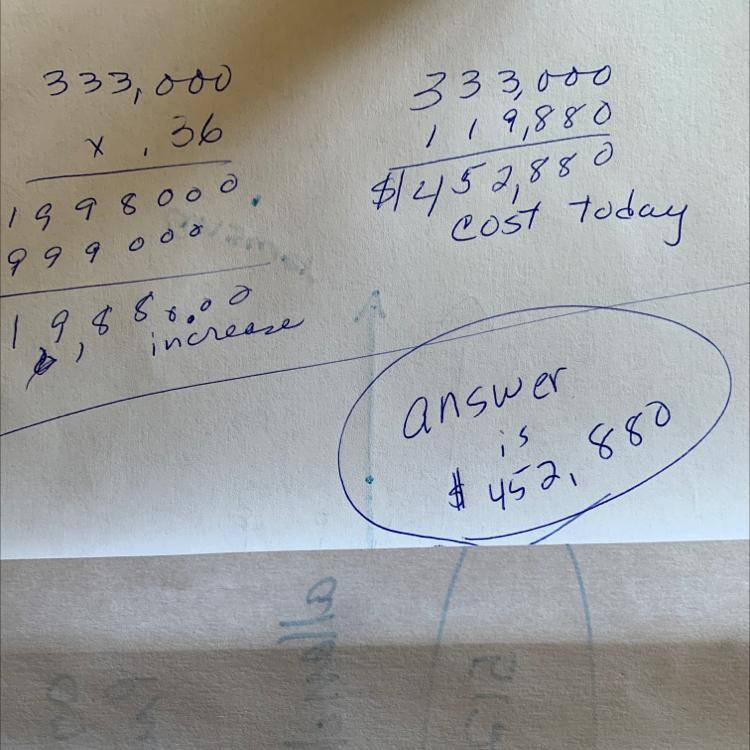 333,000
x .36
1998000
999000
19,880.00
increase
333,000
119,880
$452,880
cost today
answer
is
$ 452,880